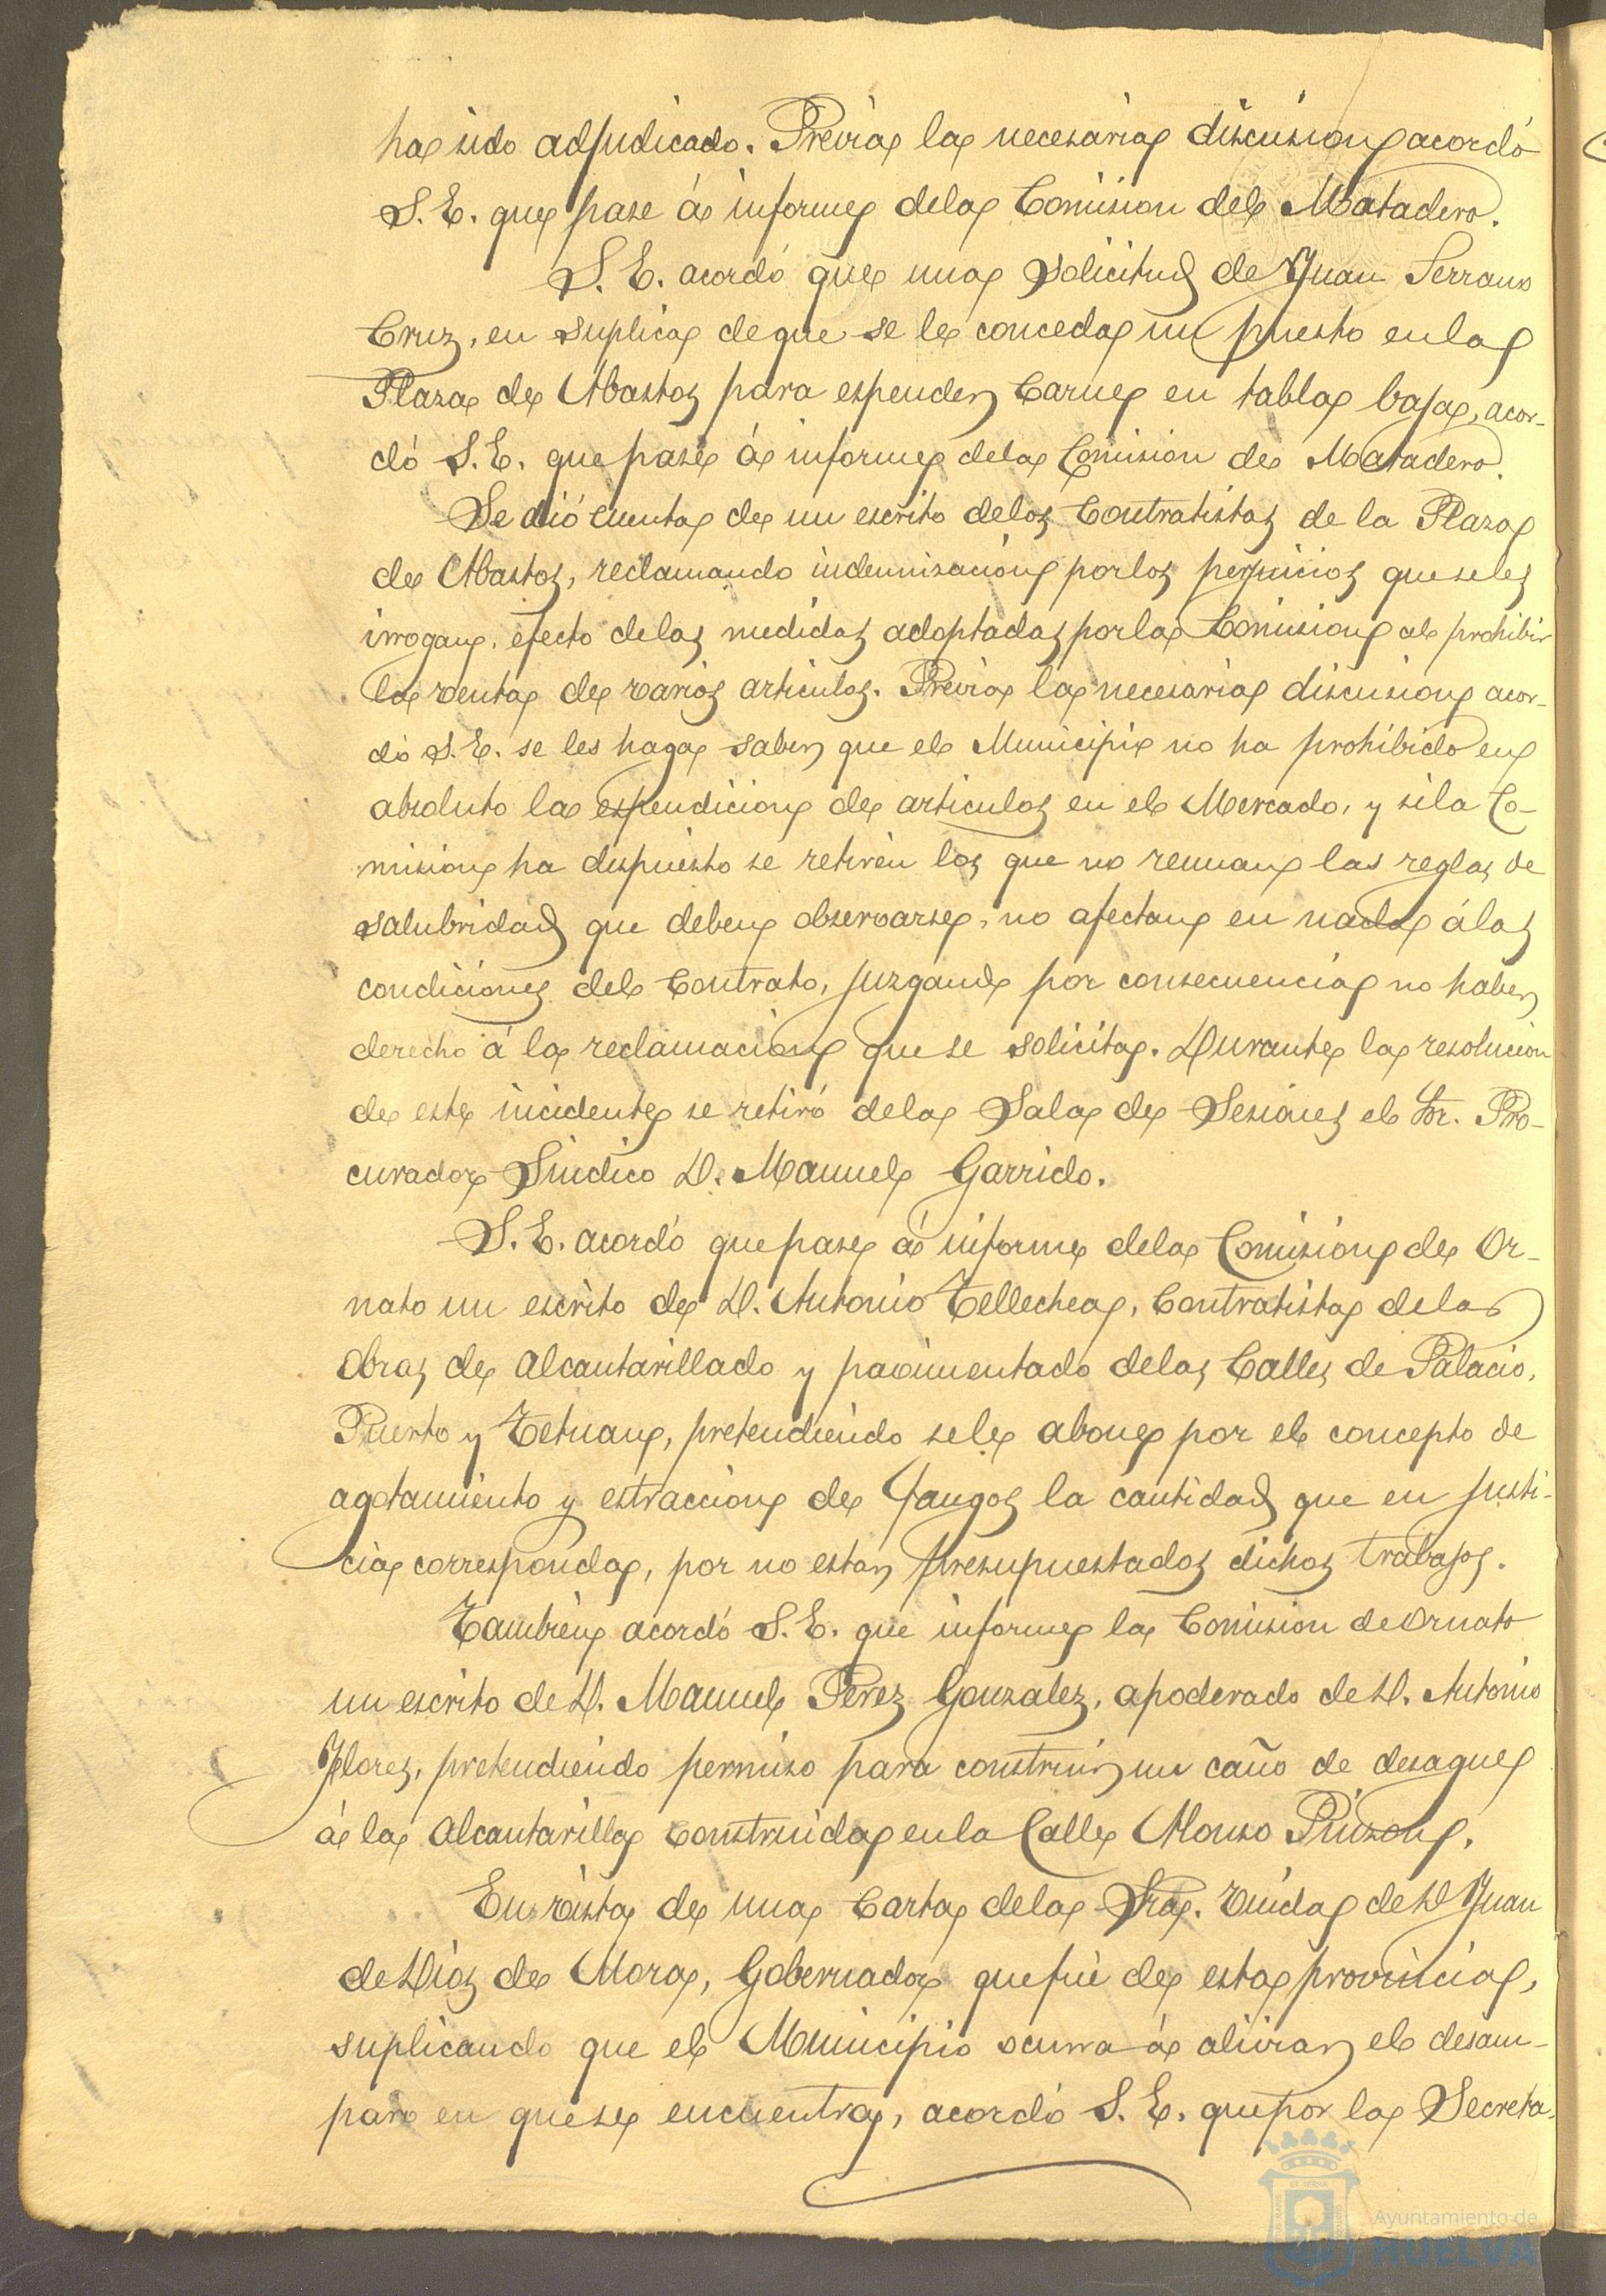 ha sido adjudicado. Previa la necesaria discusion acordó
S. E. que pase á informe de la Comision del Matadero.
S. E. acordó que una solicitud de Juan Serrano
Cruz, en suplica de que se le conceda un puesto en la
Plaza de Abastos para espender Carne en tabla baja, acor-
dó S. E. que pase á informe de la Comision de Matadero.
Se dió cuenta de un escrito de los Contratistas de la Plaza
de Abastos, reclamando indemnisacion por los perjuicios que se les
irrogan, efecto de las medidas adoptadas por la Comision al prohibir
la venta de varios articulos. Previa la necesaria discusion acor-
dó S. E. se les haga saber que el Municipio no ha prohibido en
absoluto la espendicion de articulos en el Mercado, y si la Co-
mision ha dispuesto se retiren los que no reunan las reglas de
salubridad que deben observarse, no afectan en nada á las
condiciones del Contrato, juzgando por consecuencia no haber
derecho á la reclamacion que se solicita. Durante la resolucion
de este incidente se retiró de la Sala de Sesiones el Sr. Pro-
curador Sindico D. Manuel Garrido.
S. E. acordó que pase á informe de la Comision de Or-
nato un escrito de D. Antonio Tellechea, Contratista de las
obras de alcantarillado y pavimentado de las Calles de Palacio,
Puerto y Tetuan, pretendiendo se le abone por el concepto de
agotamiento y estraccion de Fangos la cantidad que en justi-
cia corresponda, por no estar presupuestados dichos trabajos.
Tambien acordó S. E. que informe la Comision de Ornato
un escrito de D. Manuel Perez Gonzalez, apoderado de D. Antonio
Flores, pretendiendo permiso para construir un caño de desague
á la Alcantarilla construida en la Calle Alonso Pinzon.
En vista de una Carta de la Sra. Viuda de D Juan
de Dios de Mora, Gobernador que fué de esta provincia,
suplicando que el Municipio ocurra á aliviar el desam-
paro en que se encuentra, acordó S. E. que por la Secreta-
Ayuntamiento de
HUELVA